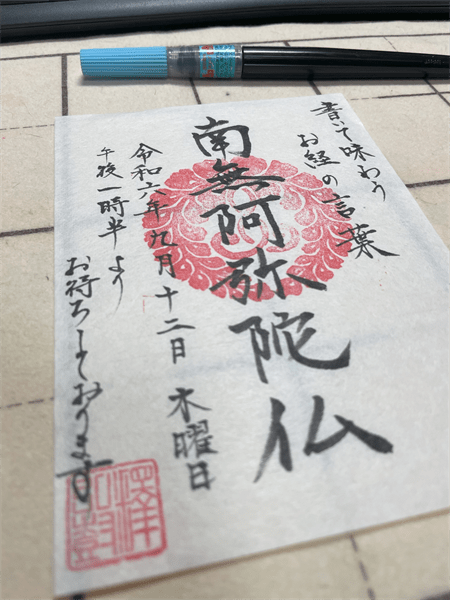 書いて味わう
お経の言葉
南無阿弥陀仏
令和六年九月十二日 木曜日
午後一時半より
お待ちしております